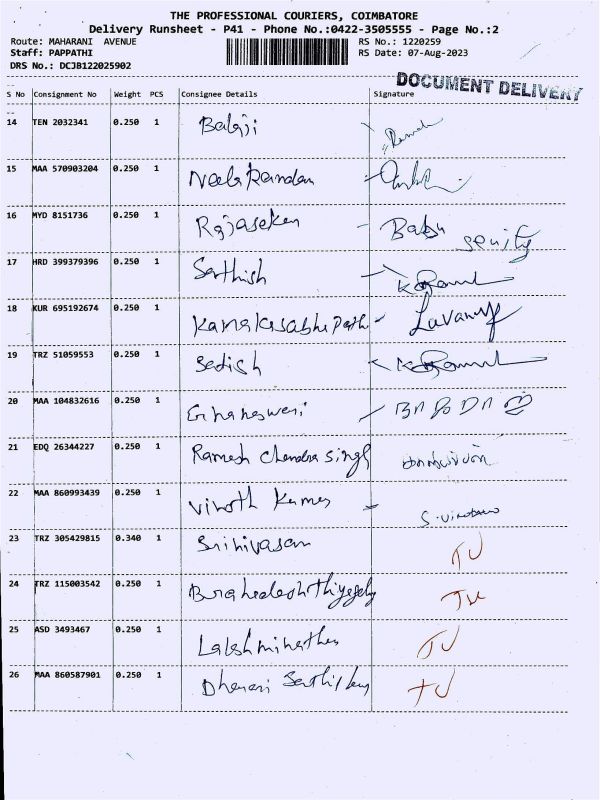 THE PROFESSIONAL COURIERS, COIMBATORE
Delivery Runsheet - P41 - Phone No.:0422-3505555 - Page No.:2
Route: MAHARANI AVENUE RS No.: 1220259
Staff: PAPPATHI RS Date: 07-Aug-2023
DRS No.: DCJB122025902
DOCUMENT DELIVERY
S No Consignment No Weight PCS Consignee Details Signature
14 TEN 2032341 0.250 1 Balaji
15 MAA 570903204 0.250 1 Neelakandan
16 MYD 8151736 0.250 1 Rajasekar Babu
17 HRD 399379396 0.250 1 Sathish
18 KUR 695192674 0.250 1 Kanakasabhapathi Lavanya
19 TRZ 51059553 0.250 1 Sadish
20 MAA 104832616 0.250 1
21 EDQ 26344227 0.250 1 Ramesh Chandra Singh
22 MAA 860993439 0.250 1 Vinoth Kumar
23 TRZ 305429815 0.340 1 Srinivasan TU
24 TRZ 115003542 0.250 1
25 ASD 3493467 0.250 1 TU
26 MAA 860587901 0.250 1 TU